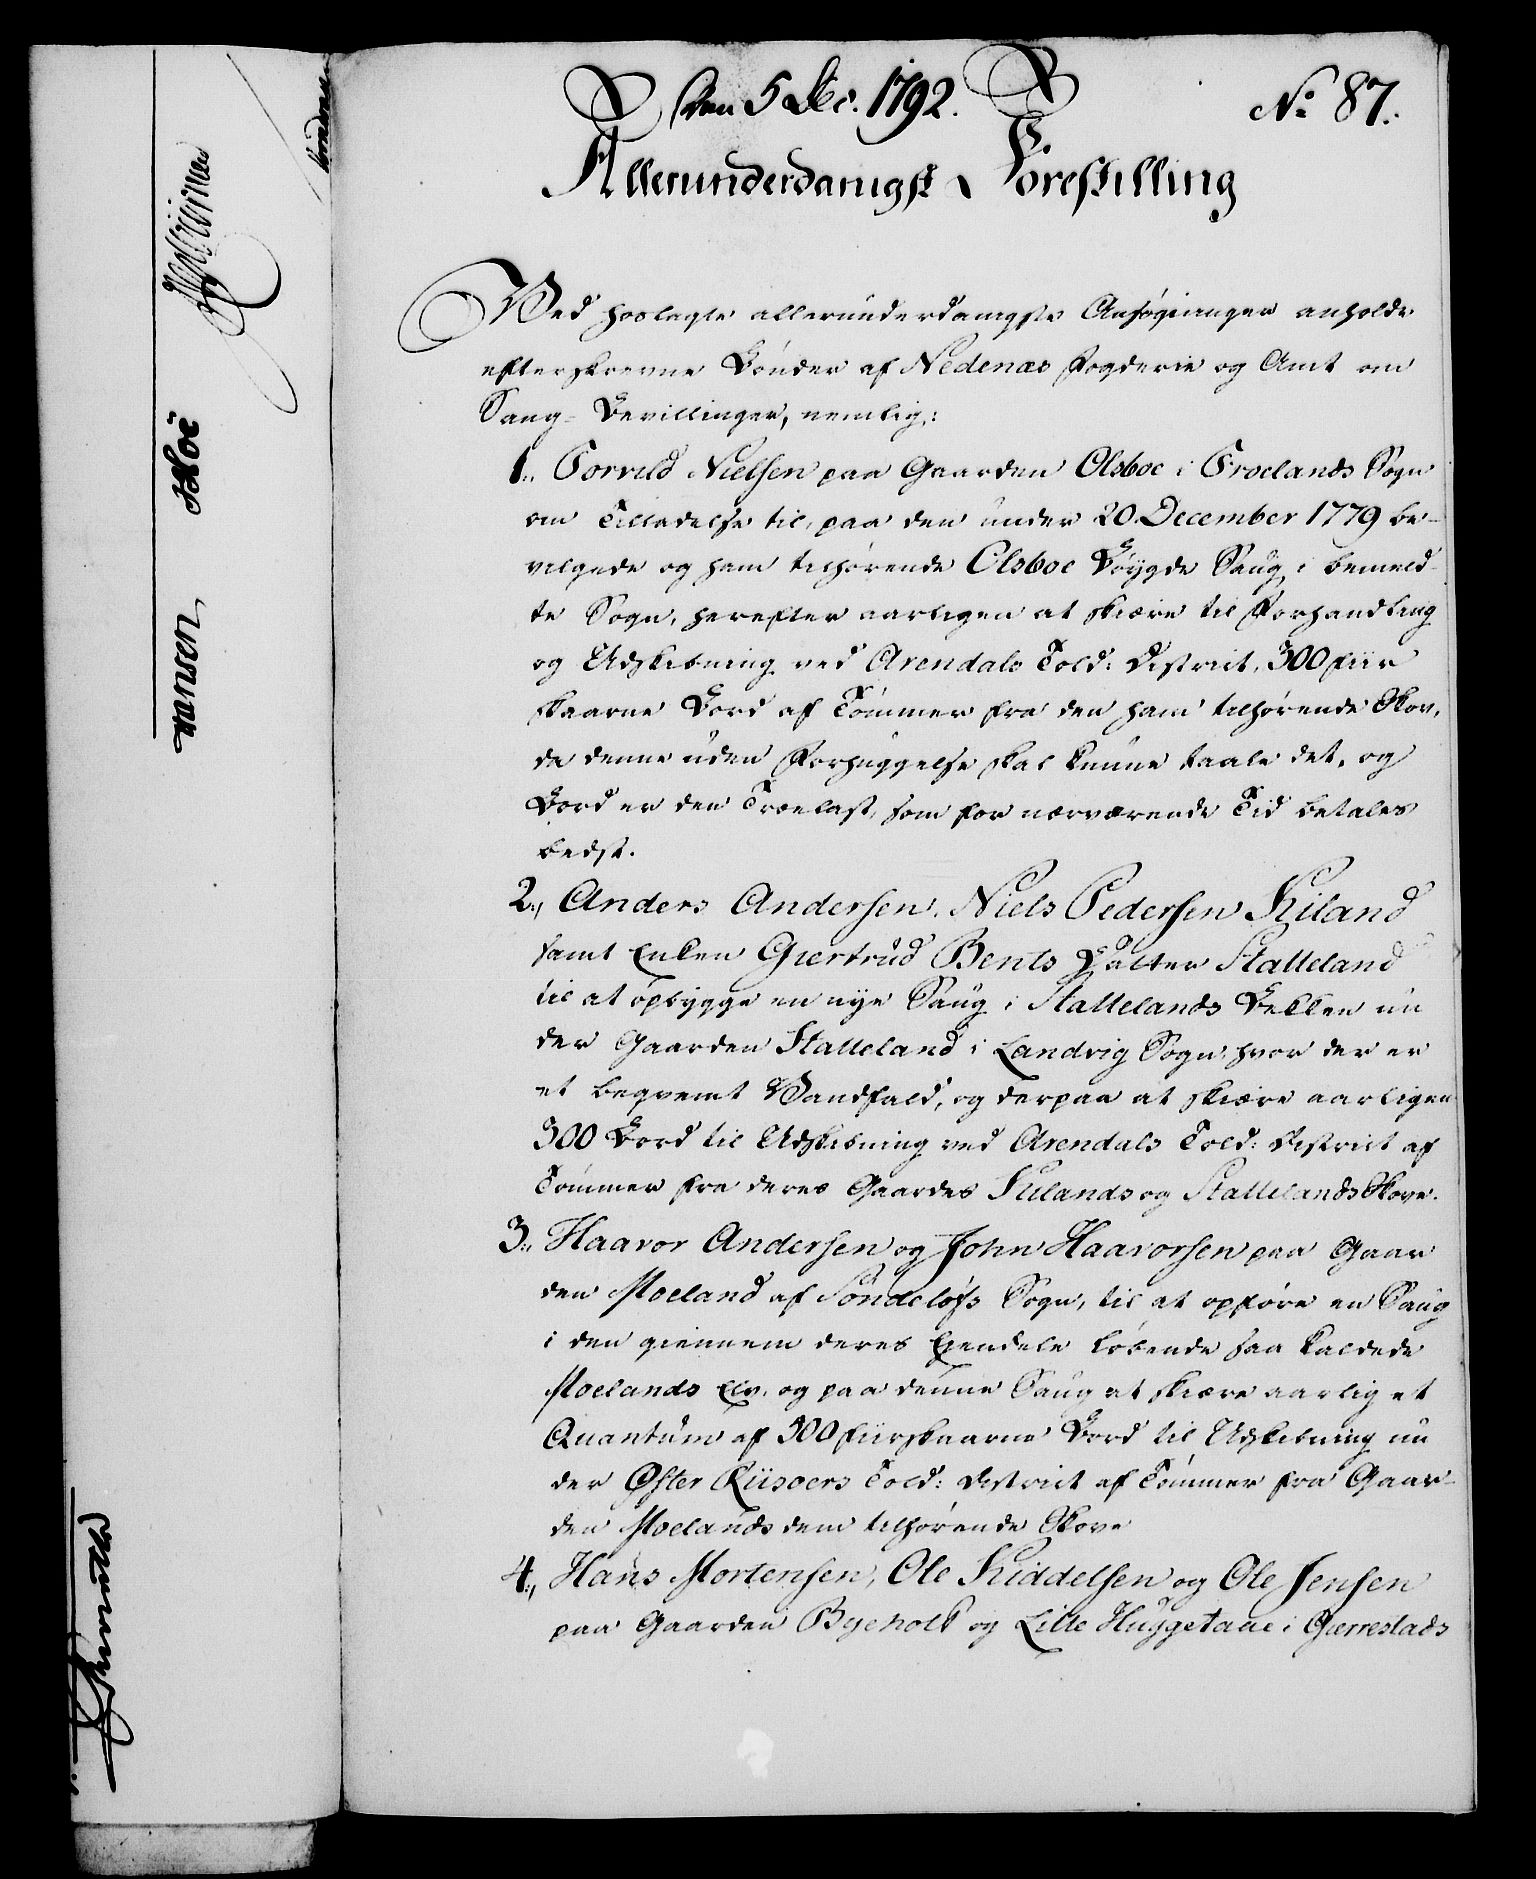 Den 5 Dec. 1792.
No 87.
Allerunderdanigst Forestilling
Ved hoslagte allerunderdanigste Ansøgninger anholde
efterskrevne Bønder af Nedenæs Fogderie og Amt om
Saug-Bevillinger, nemlig:
1., Torvild Nielsen paa Gaarden Olsboe i Froelands Sogn
om Tilladelse til, paa den under 20 December 1779 be-
vilgede og ham tilhørende Olsboe Bøygde Saug i bemeld-
te Sogn, herefter aarligen at skiære til Forhandling
og Udskibning ved Arendals Told: District, 300 fiir
skaarne Bord af Tømmer fra den ham tilhørende Skov,
da denne uden Forhuggelse skal kunne taale det, og
Bord er den Trælast, som for nærværende Tid betales
bedst.
2., Anders Andersen, Niels Pedersen Kiland
samt Enken Giertrud Bents Datter Stalleland
til at opbygge en nye Saug i Stallelands Bekken un
der Gaarden Stalleland i Landvig Sogn, hvor der er
et beqvemt Vandfald, og derpaa at skiære aarligen
300 Bord til Udskibning ved Arendals Told: District af
Tømmer fra deres Gaardes Kilands og Stallelands Skove.
3., Haavor Andersen og John Haavorsen paa Gaar
den Moeland af Søndeløfs Sogn, til at opføre en Saug
i den giennem deres Eyendele løbende saa kaldede
Moelands Elv, og paa denne Saug at skiære aarlig et
Quantum af 300 fiirskaarne Bord til Udskibning un
der Øster Riisoers Told: District af Tømmer fra Gaar-
den Moelands dem tilhørende Skove
4., Hans Mortensen, Ole Kiddelsen og Ole Jensen
paa Gaarden Byeholt og Lille Huggetane i Gierrestads
Hansen
Hoë